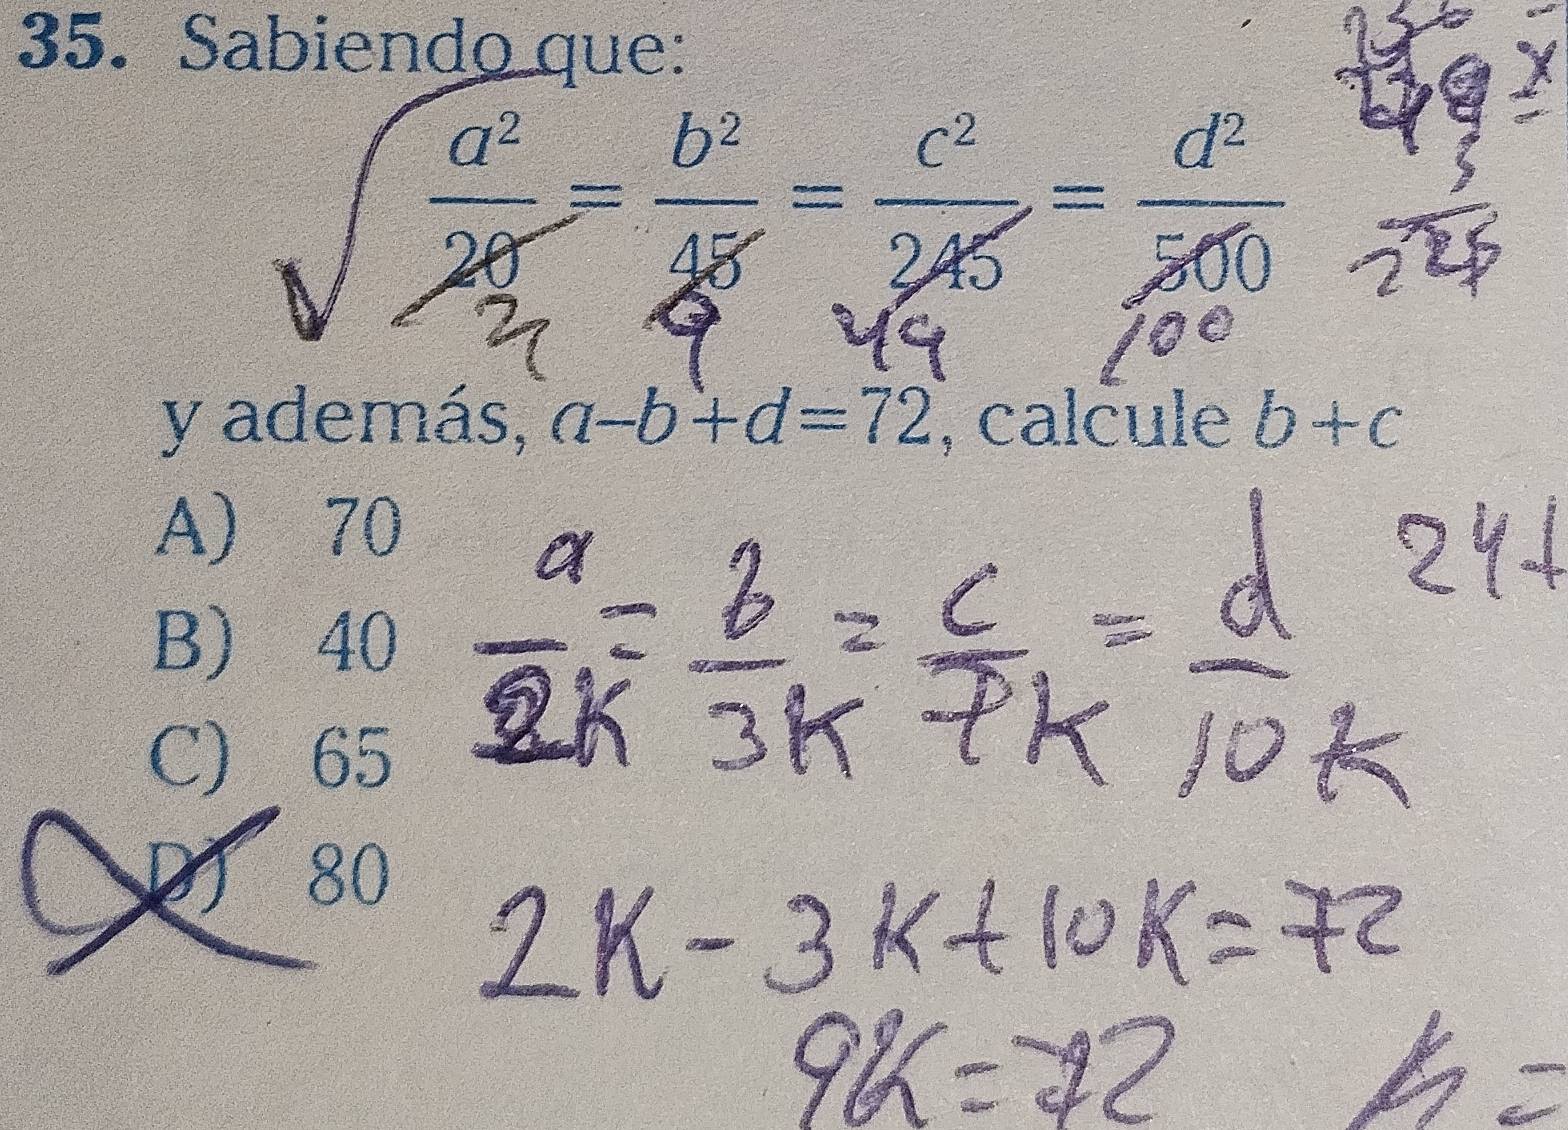 35. Sabiendo que:
a²/20 = b²/45 = c²/245 = d²/500
9 49 100
y además, a-b+d=72, calcule b+c
A) 70
B) 40
C) 65
D) 80
a/2K = b/3K = c/7K = d/10K
24+
2K-3K+10K=72
9K=72 K=